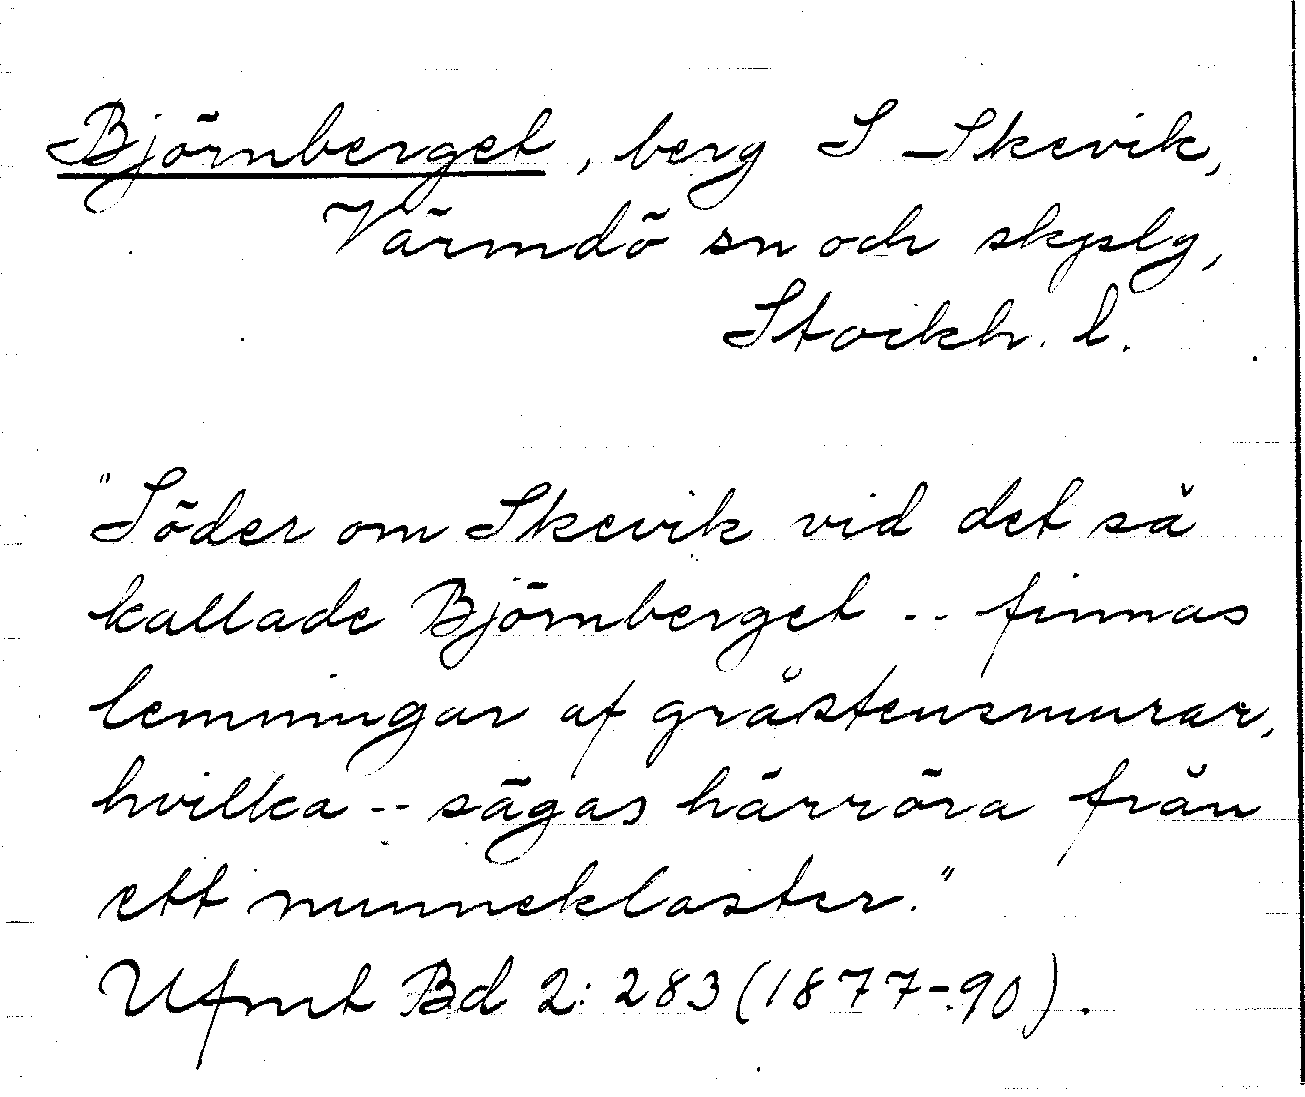 Björnberget, berg S Skevik,
Värmdö sn och skpslg,
Stockh. l.
"Söder om Skevik vid det så
kallade Björnberget -- finnas
lemningar af gråstensmurar,
hvilka -- sägas härröra från
ett nunnekloster."
Ufmt Bd 2: 283 (1877-90).